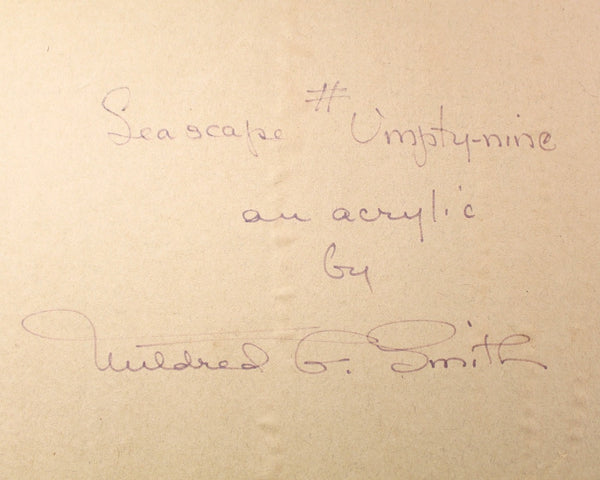 Seascape # Umpty-nine
an acrylic
by
Mildred G. Smith